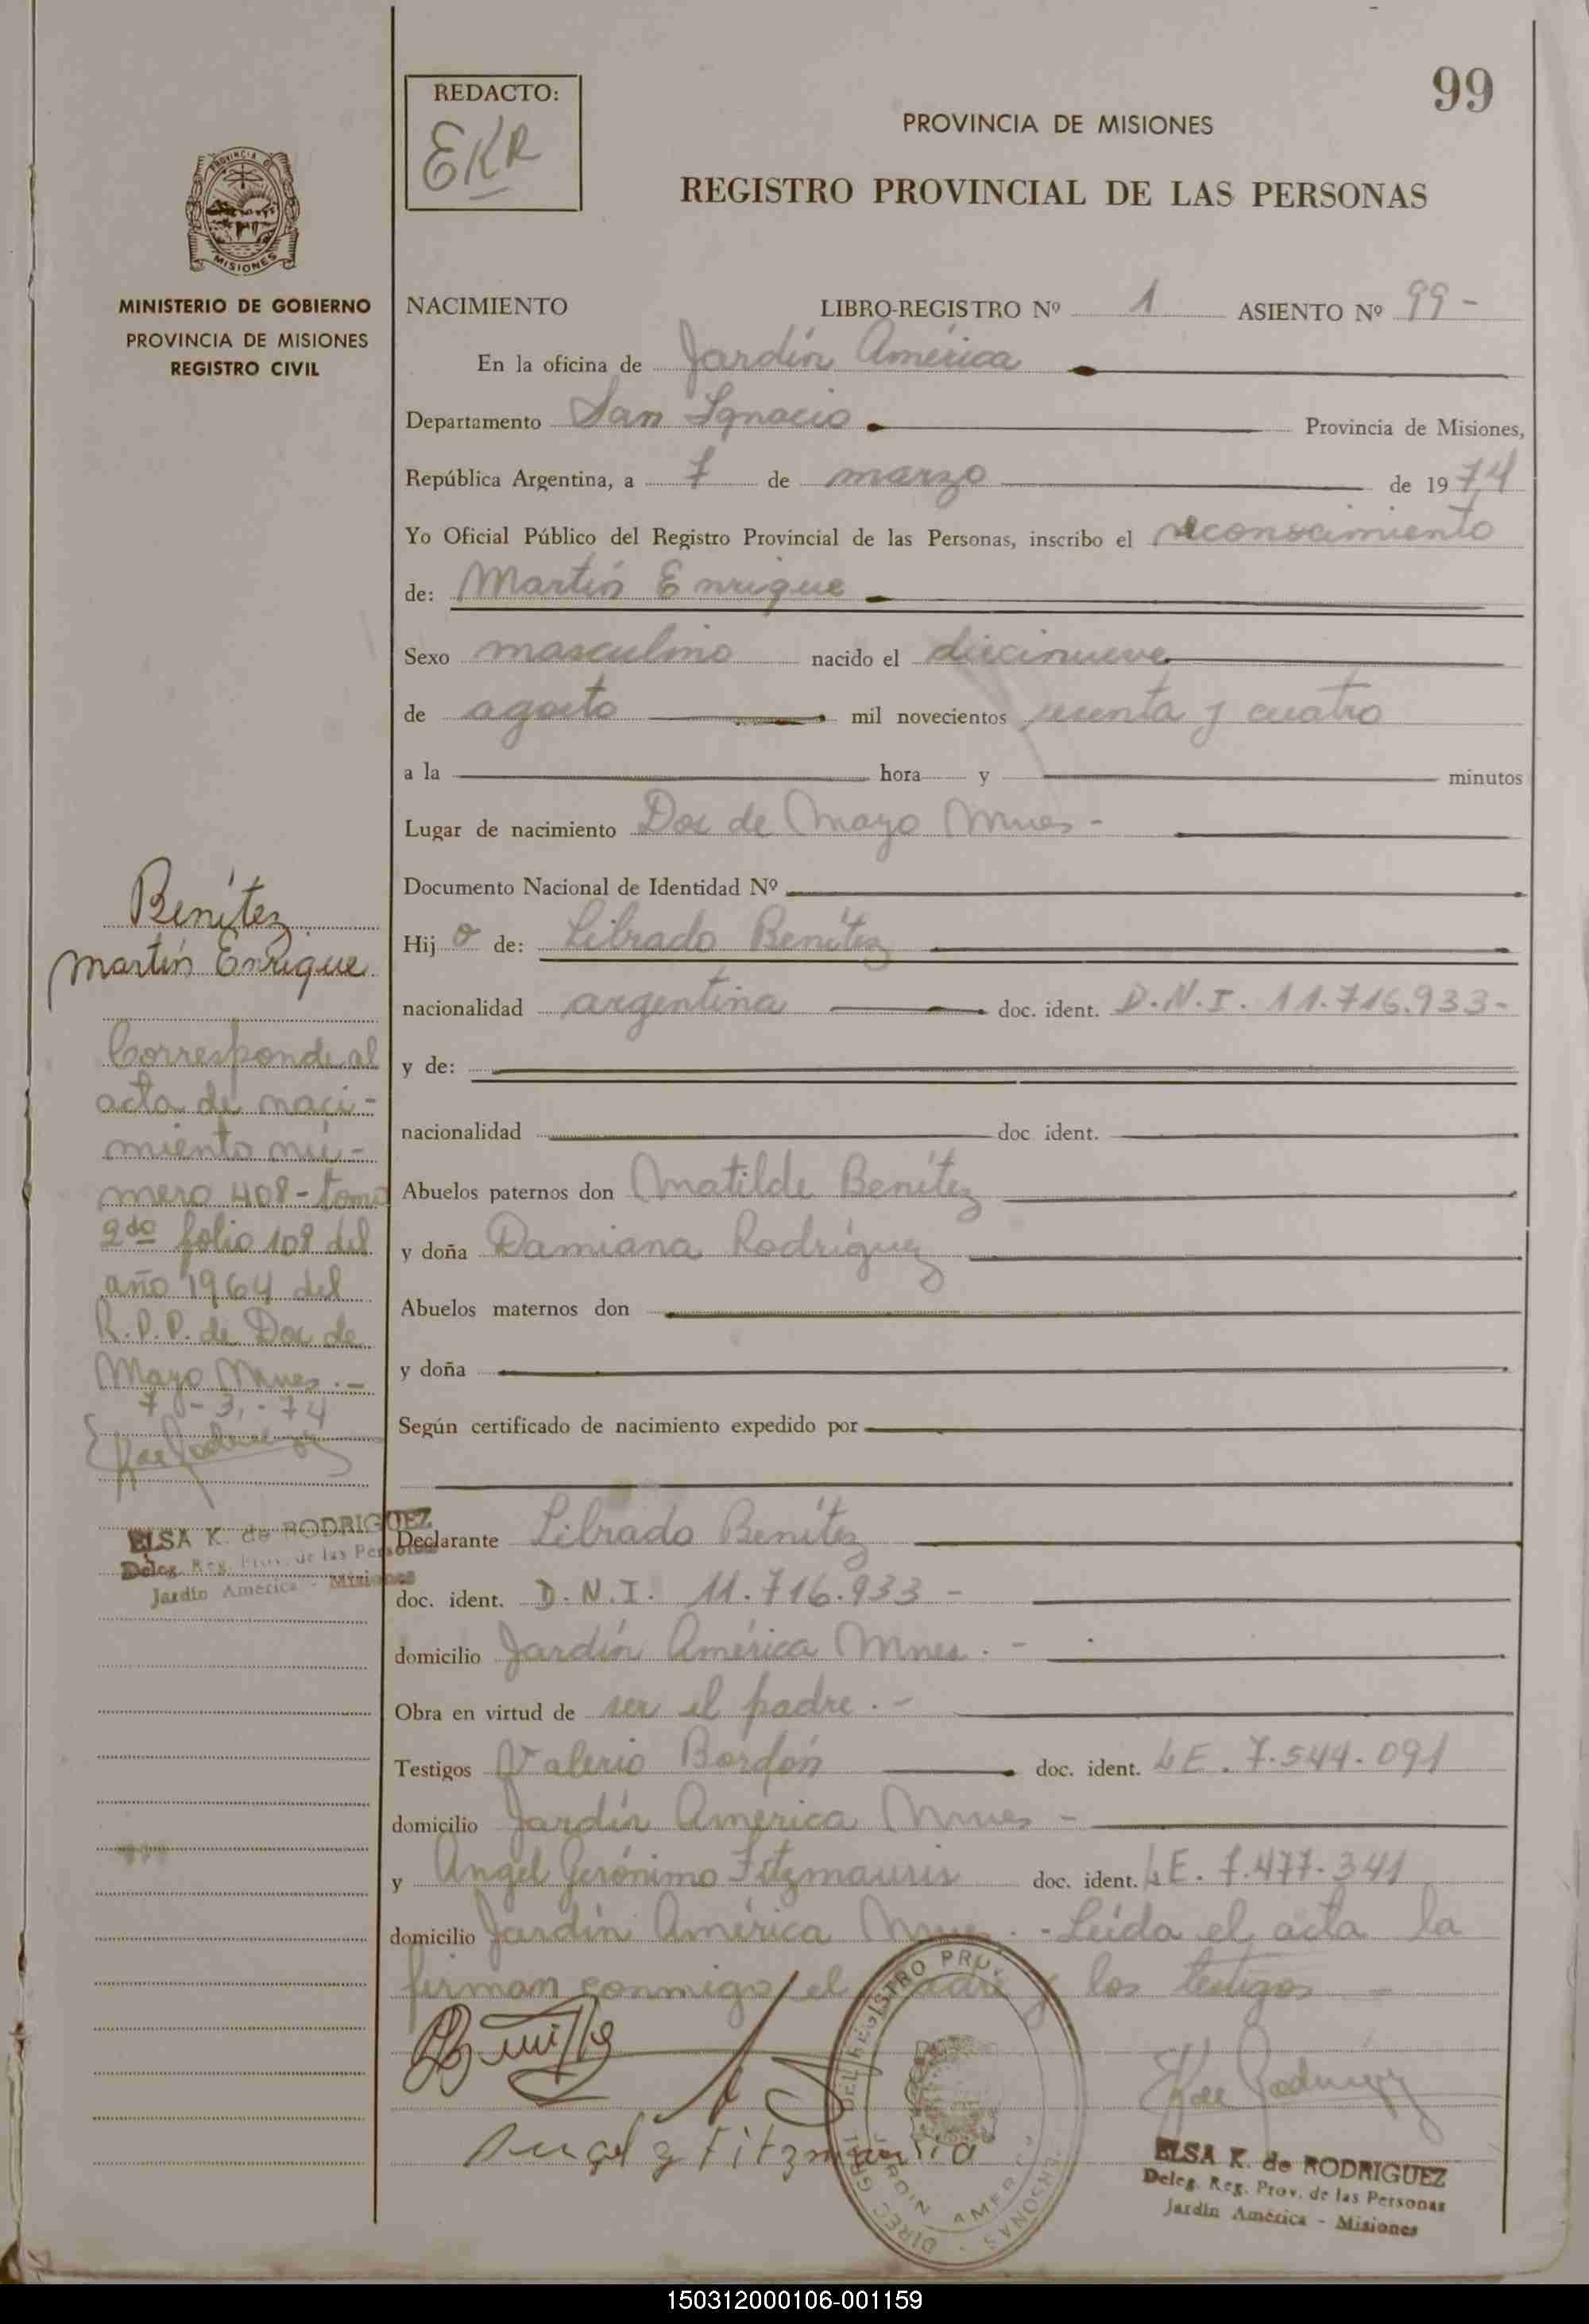 99
REDACTO:
EKR
PROVINCIA DE MISIONES
REGISTRO PROVINCIAL DE LAS PERSONAS
PROVINCIA D
MISIONES
MINISTERIO DE GOBIERNO
PROVINCIA DE MISIONES
REGISTRO CIVIL
NACIMIENTO LIBRO-REGISTRO Nº 1 ASIENTO Nº 99 -
En la oficina de Jardín América
Departamento San Ignacio Provincia de Misiones,
República Argentina, a 7 de marzo de 1974
Yo Oficial Público del Registro Provincial de las Personas, inscribo el reconocimiento
de: Martín Enrique
Sexo masculino nacido el diecinueve
de agosto mil novecientos sesenta y cuatro
a la hora y minutos
Lugar de nacimiento Dos de Mayo Mnes -
Documento Nacional de Identidad Nº
Hijo de: Librado Benítez
nacionalidad argentina doc. ident. D.N.I. 11.716.933-
y de:
nacionalidad doc ident.
Abuelos paternos don Matilde Benítez
y doña Damiana Rodríguez
Abuelos maternos don
y doña
Según certificado de nacimiento expedido por
Declarante Librado Benítez
doc. ident. D.N.I. 11.716.933 -
domicilio Jardín América Mnes. -
Obra en virtud de ser el padre. -
Testigos Valerio Bordón doc. ident. LE. 7.544.091
domicilio Jardín América Mnes -
y Angel Gerónimo Fitzmauris doc. ident. LE. 7.477.341
domicilio Jardín América Mnes. - Leida el acta la
firman conmigo el padre y los testigos -
Benítez
Martín Enrique
Corresponde al
acta de naci-
miento nú-
mero 408 - tomo
2do folio 108 del
año 1964 del
R.P.P. de Dos de
Mayo Mnes. -
7 - 3, - 74
ELSA K. de RODRIGUEZ
Deleg. Reg. Prov. de las Personas
Jardín América - Misiones
Angel g Fitzmauris
DIREC GRAL DEL REGISTRO PROV PERSONAS
JARDIN AMERICA
ELSA K. de RODRIGUEZ
Deleg. Reg. Prov. de las Personas
Jardín América - Misiones
150312000106-001159